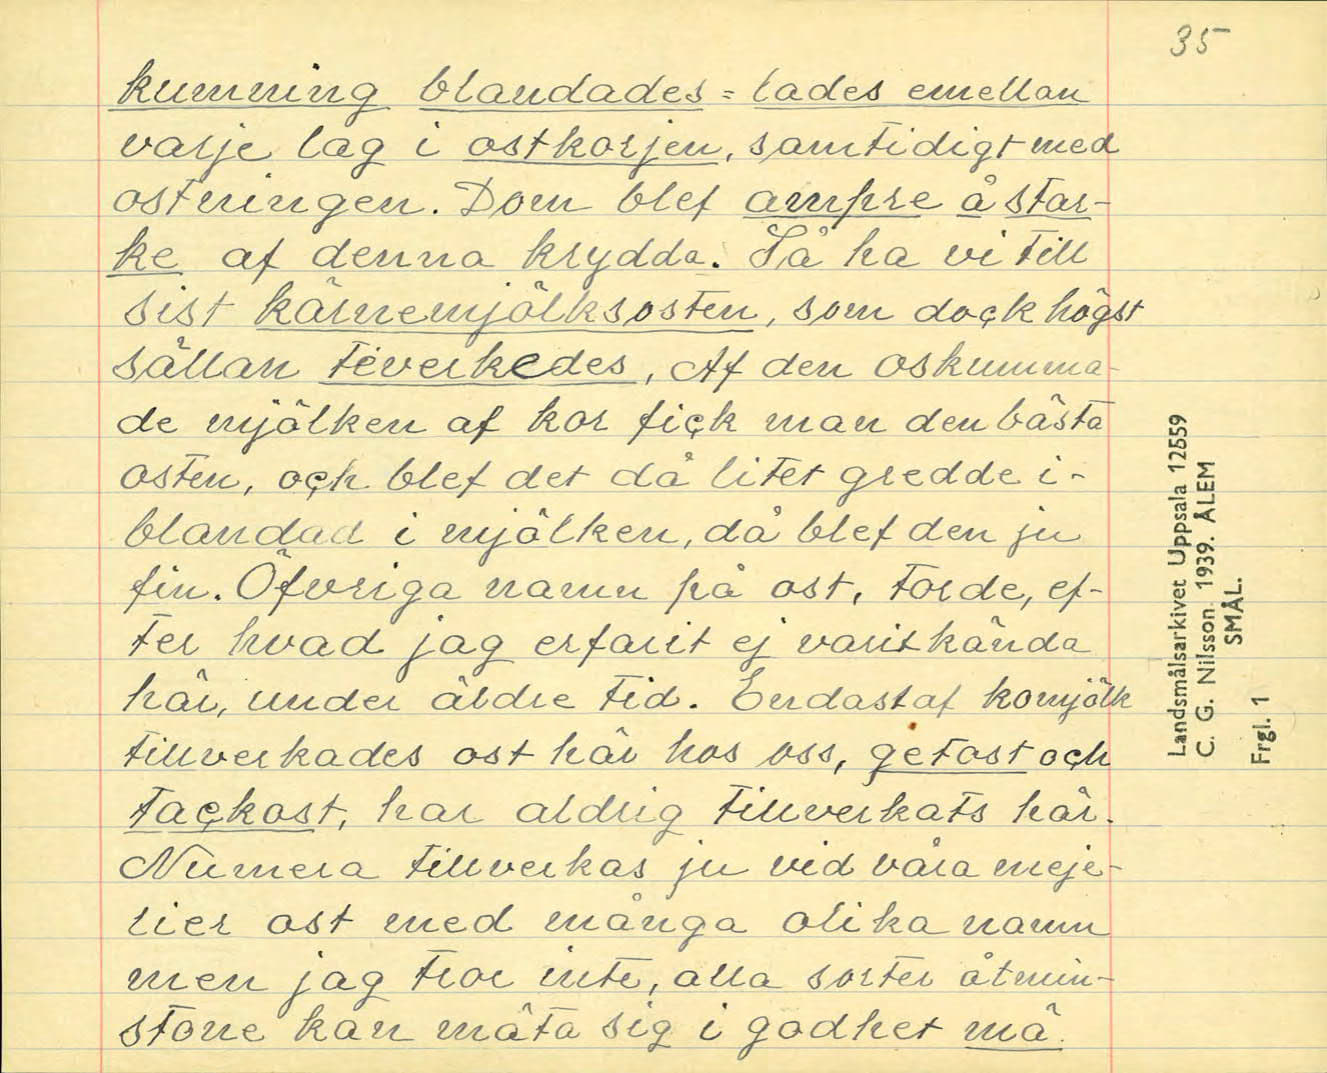 35
kumming blandades = lades emellan
varje lag i ostkorjen, samtidigt med
ostningen. Dom blef ampre å star-
ke af denna krydda. Så ha vi till
sist kärnemjölksosten, som dock högst
sällan teverkedes, Af den oskumma-
de mjölken af kor fick man den bästa
osten, och blef det då litet gredde i-
blandad i mjölken, då blef den ju
fin. Öfvriga namn på ost, torde, ef-
ter hvad jag erfarit ej varit kända
här, under äldre tid. Endast af komjölk
tillverkades ost här hos oss, getost och
tackost, har aldrig tillverkats här.
Numera tillverkas ju vid våra meje-
rier ost med många olika namn
men jag tror inte, alla sorter åtmin-
stone kan mäta sig i godhet mä
Landsmålsarkivet Uppsala 12559
C. G. Nilsson 1939. ÅLEM
SMÅL.
Frgl. 1